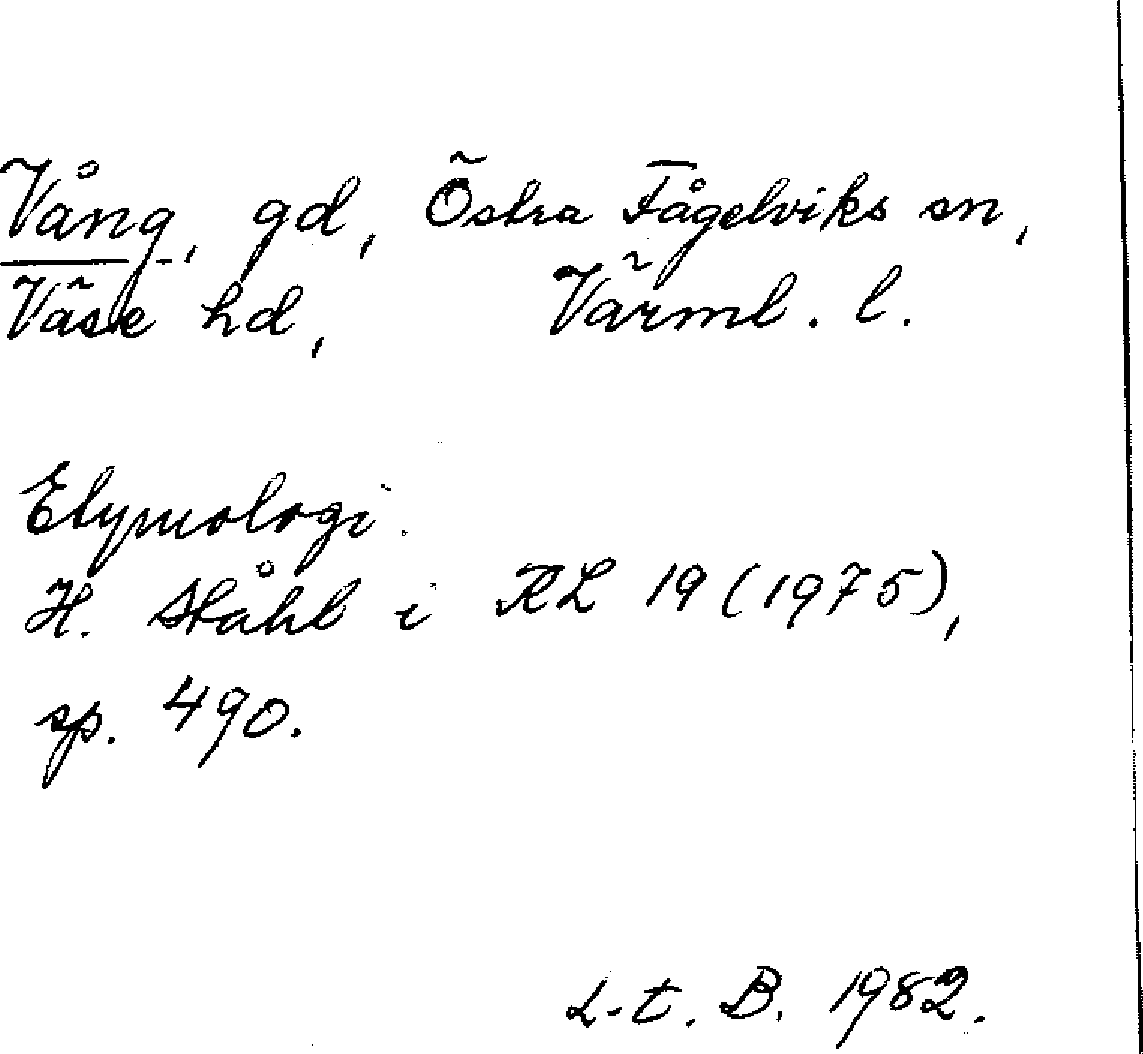 Vång, gd, Östra Fågelviks sn,
Väse hd, Värml. l.
Etymologi.
H. Ståhl i KL 19 (1975),
sp. 490.
L-t. B. 1982.